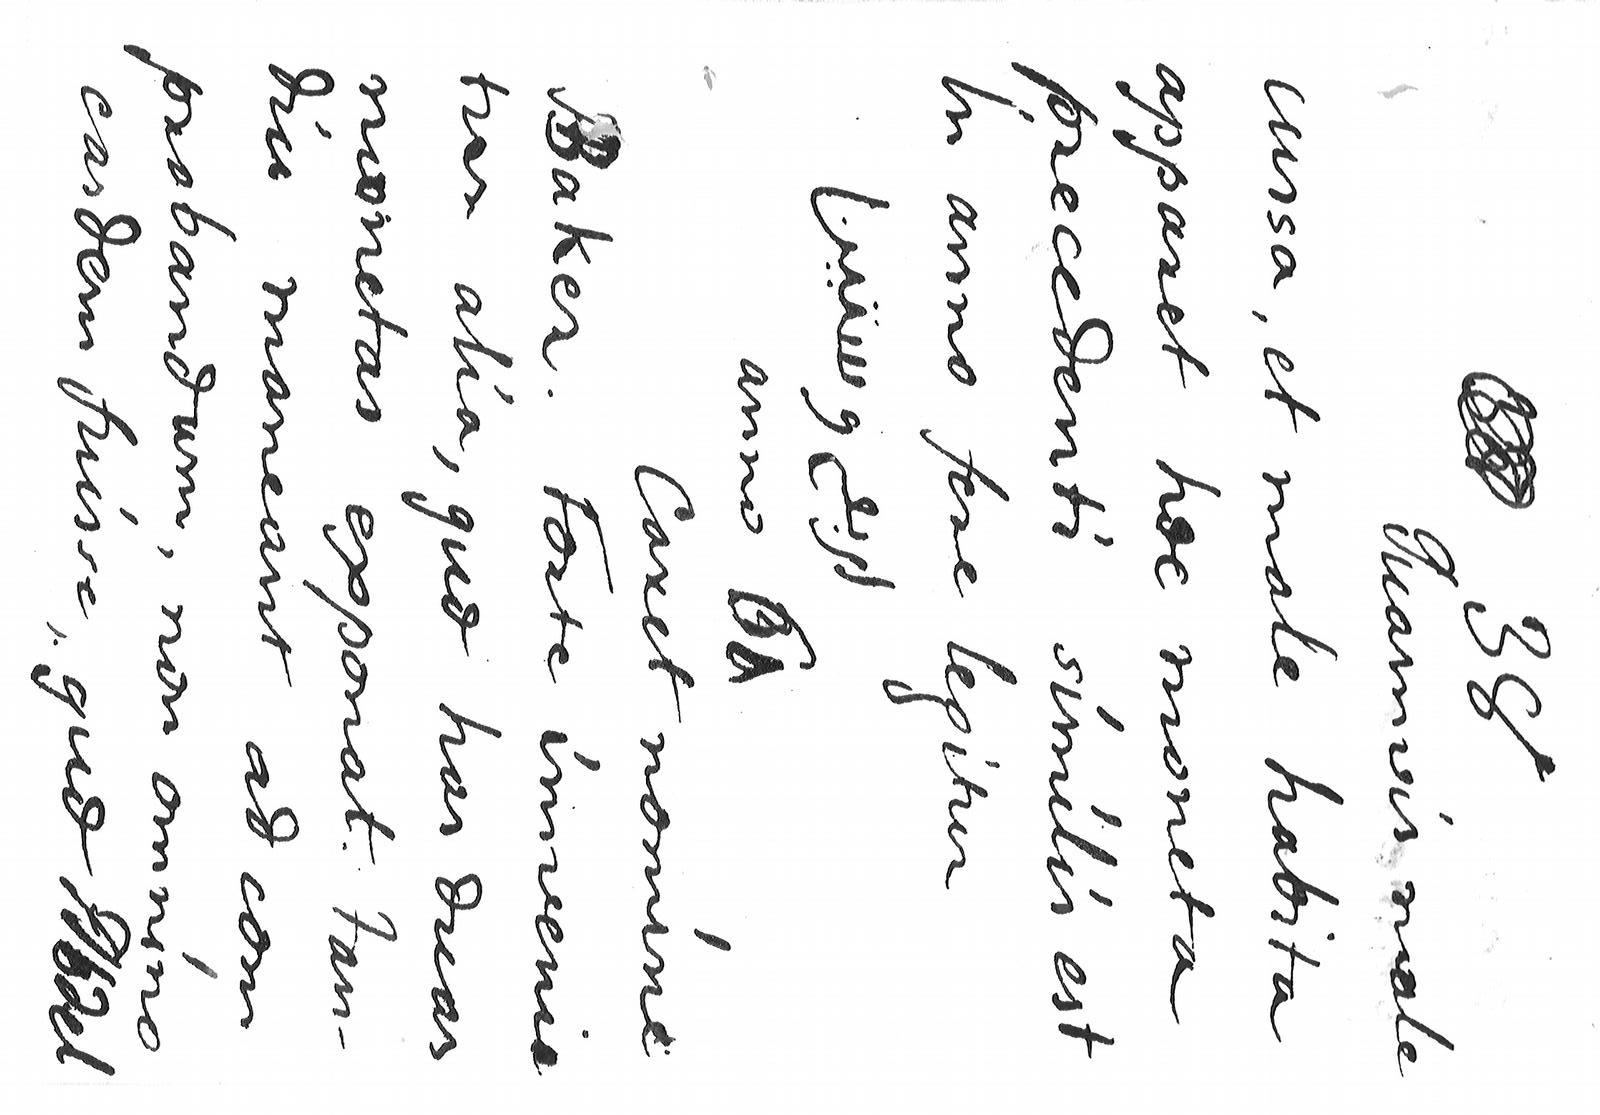 38
Quamvis male
cursa, et male habita
apparet hoc moneta
precedenti similis est
In anno fere legitur
anno
Caret nomine
Baker. Forte invenie
tur alia, qud has duas
monetas exponat. Tam-
diu maneant ad com
probandum, non omnino
easdem fuisse, qud